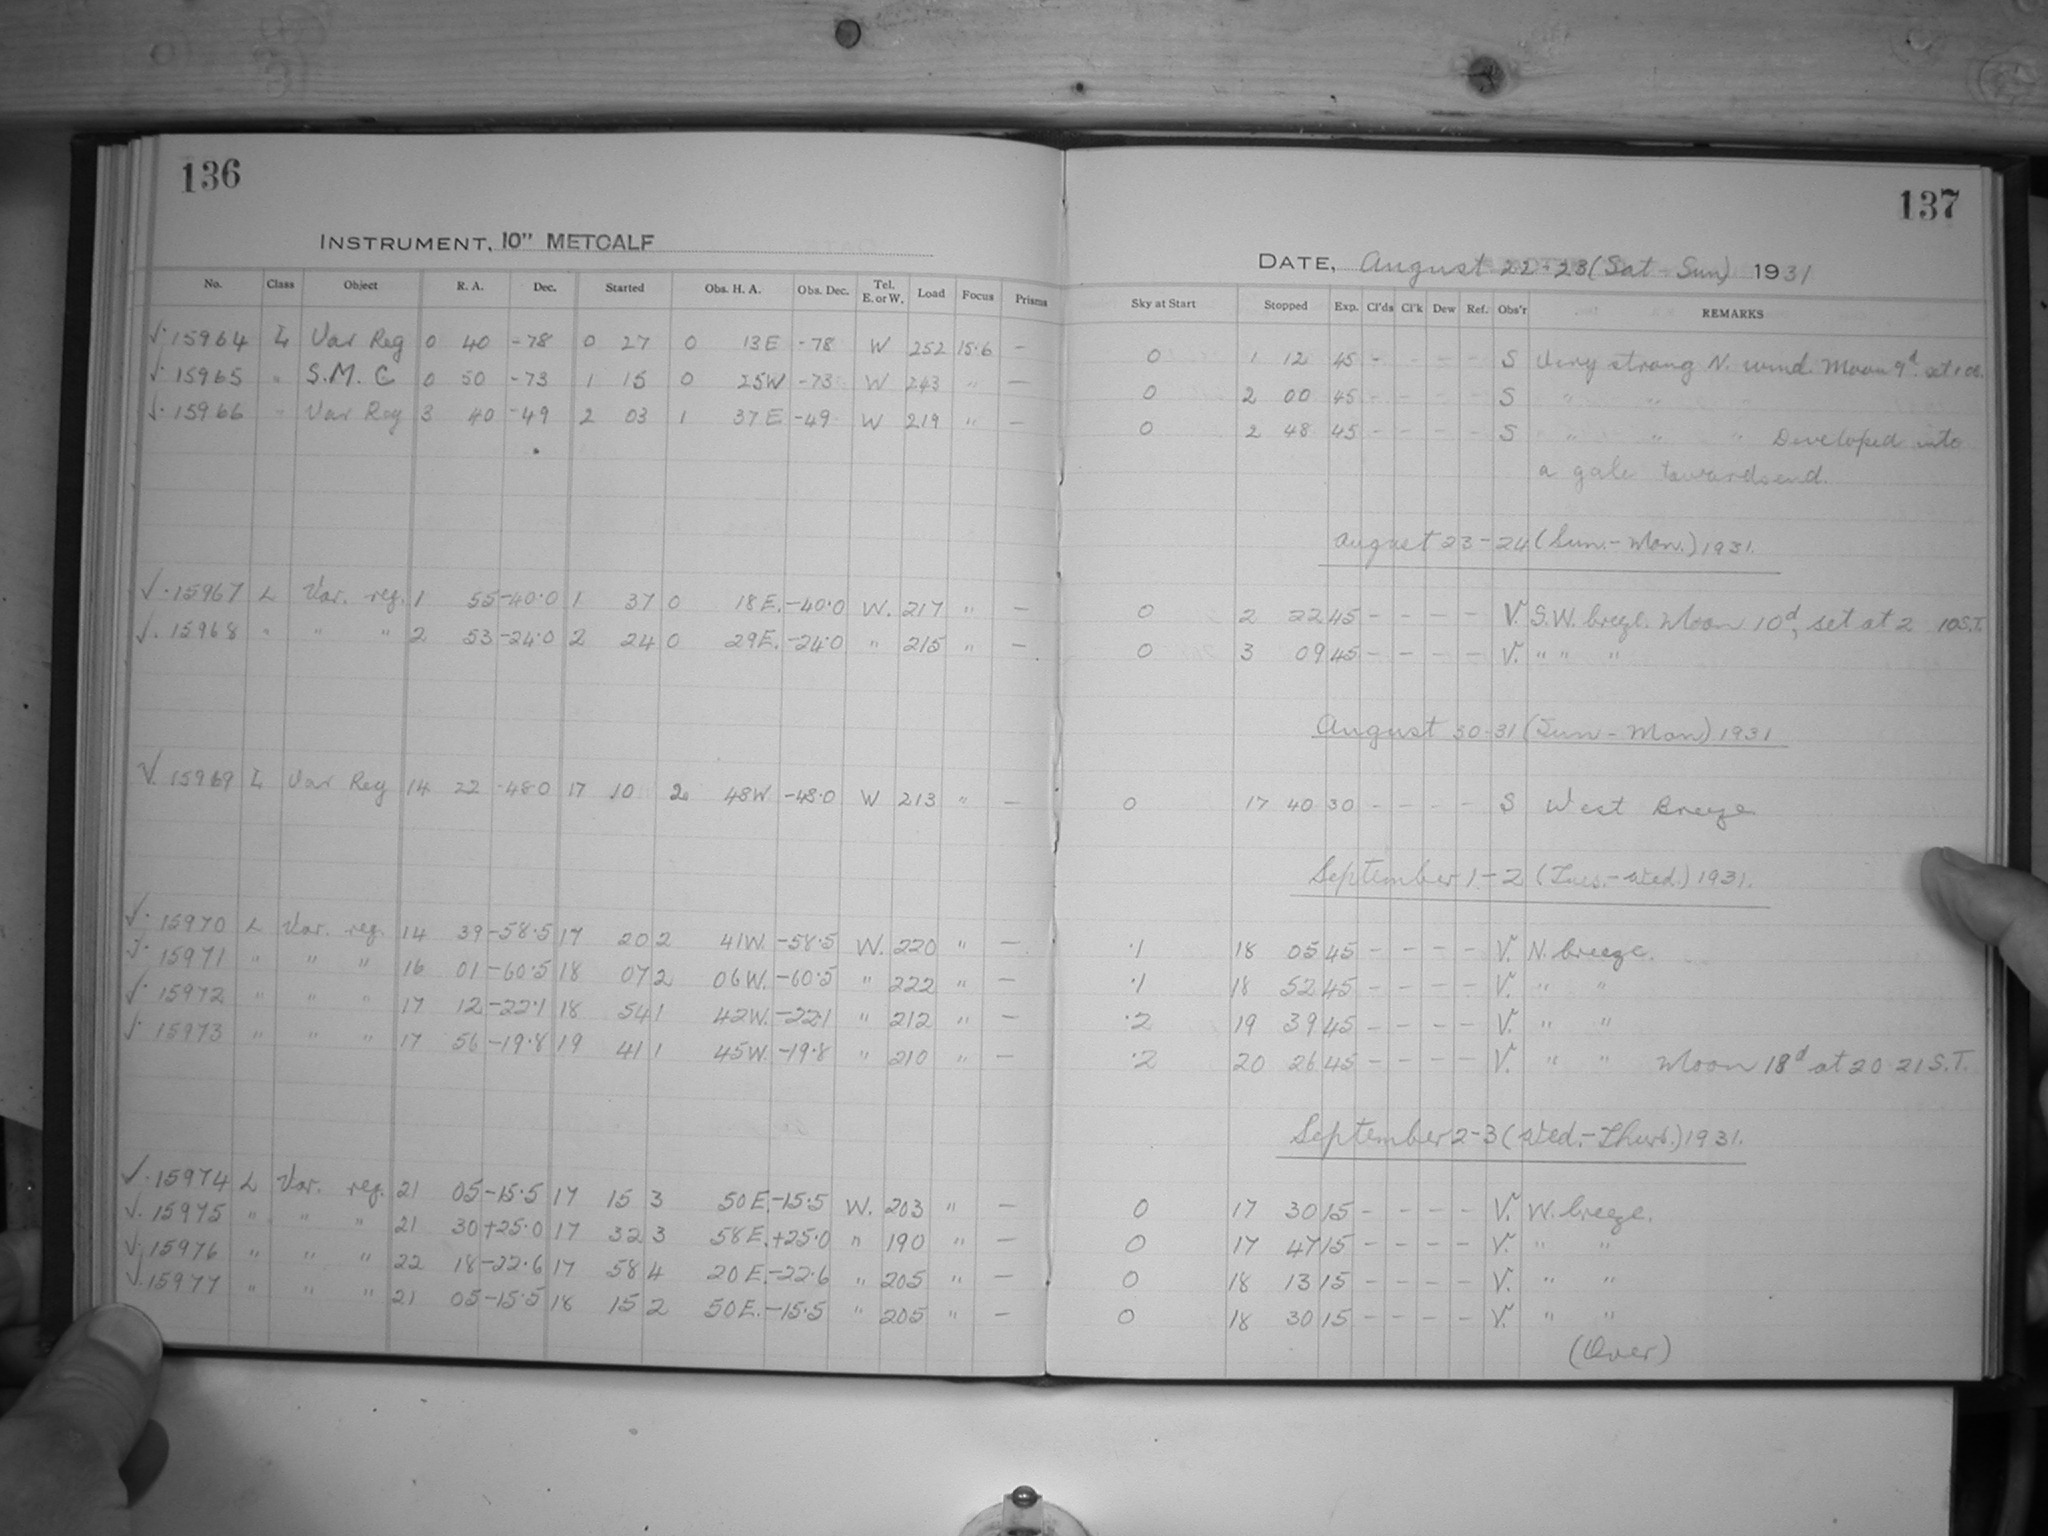 136
INSTRUMENT, 10" METCALF
No. Class Object R. A. Dec. Started Obs. H. A. Obs. Dec. Tel. E. or W. Load Focus Prisms
√. 15964 L Var Reg 0 40 -78 0 27 0 13E -78 W 252 15.6 —
√. 15965 " S.M.C 0 50 -73 1 15 0 25W -73 W 243 " —
√. 15966 " Var Reg 3 40 -49 2 03 1 37E -49 W 219 " —
√. 15967 L Var. reg. 1 55 -40.0 1 37 0 18E. -40.0 W. 217 " —
√. 15968 " " " 2 53 -24.0 2 24 0 29E. -24.0 " 215 " —
√. 15969 L Var Reg 14 22 -48.0 17 10 2 48W -48.0 W 213 " —
√. 15970 L Var. reg. 14 39 -58.5 17 20 2 41W. -58.5 W. 220 " —
√. 15971 " " " 16 01 -60.5 18 07 2 06W. -60.5 " 222 " —
√. 15972 " " " 17 12 -22.1 18 54 1 42W. -22.1 " 212 " —
√. 15973 " " " 17 56 -19.8 19 41 1 45W. -19.8 " 210 " —
√. 15974 L Var. reg. 21 05 -15.5 17 15 3 50E. -15.5 W. 203 " —
√. 15975 " " " 21 30 +25.0 17 32 3 58E. +25.0 " 190 " —
√. 15976 " " " 22 18 -22.6 17 58 4 20E. -22.6 " 205 " —
√. 15977 " " " 21 05 -15.5 18 15 2 50E. -15.5 " 205 " —
137
DATE, August 22-23 (Sat - Sun) 1931
Sky at Start Stopped Exp. Cl'ds Cl'k Dew Ref. Obs'r REMARKS
0 1 12 45 - - - - S Very strong N. wind. Moon 9d. set 1 08.
0 2 00 45 - - - - S " "
0 2 48 45 - - - - S " " " Developed into
a gale towards end.
August 23-24 (Sun.-Mon.) 1931.
0 2 22 45 - - - - V. S.W. breeze. Moon 10d, set at 2 10 S.T.
0 3 09 45 - - - - V. " " "
August 30-31 (Sun - Mon) 1931
0 17 40 30 - - - - S West Breeze
September 1-2 (Tues.-Wed.) 1931.
.1 18 05 45 - - - - V. N. breeze.
.1 18 52 45 - - - - V. " "
.2 19 39 45 - - - - V. " "
.2 20 26 45 - - - - V. " " Moon 18d at 20 21 S.T.
September 2-3 (Wed.-Thurs.) 1931.
0 17 30 15 - - - - V. W. breeze.
0 17 47 15 - - - - V. " "
0 18 13 15 - - - - V. " "
0 18 30 15 - - - - V. " "
(Over)